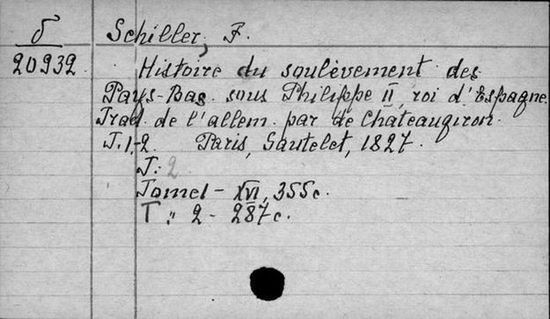 δ Schiller, F.
20932. Histoire du soulèvement des
Pays-Bas sous Philippe II, roi d'Espagne.
Trad. de l'allem. par de Châteaugiron.
T. 1, 2. Paris, Sautelet, 1827.
T. 2
Tome 1 - XVI, 355 c.
T " 2 - 287 c.